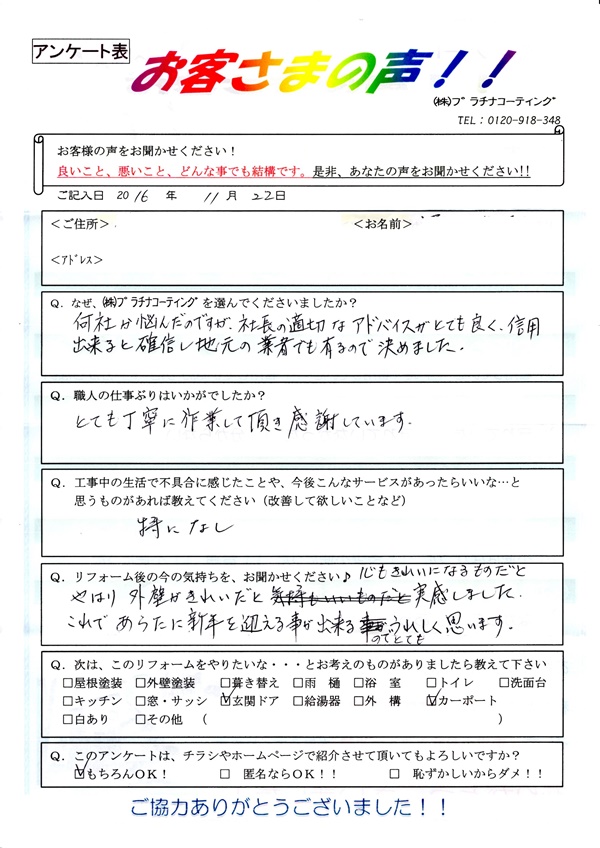 アンケート表
お客さまの声！！
㈱プラチナコーティング
TEL：0120-918-348
お客様の声をお聞かせください！
良いこと、悪いこと、どんな事でも結構です。是非、あなたの声をお聞かせください!!
ご記入日 2016 年 11月 22日
＜ご住所＞ ＜お名前＞
＜アドレス＞
Q．なぜ、㈱プラチナコーティングを選んでくださいましたか？
何社か悩んだのですが、社長の適切なアドバイスがとても良く、信用
出来ると確信し地元の業者でも有るので決めました。
Q．職人の仕事ぶりはいかがでしたか？
とても丁寧に作業して頂き感謝しています。
Q．工事中の生活で不具合に感じたことや、今後こんなサービスがあったらいいな…と
思うものがあれば教えてください（改善して欲しいことなど）
特になし
Q．リフォーム後の今の気持ちを、お聞かせください♪ 心もきれいになるものだと
やはり外壁がきれいだと気持もいいものだと実感しました。
これであらたに新年を迎える事が出来るのでとてもうれしく思います。
Q．次は、このリフォームをやりたいな・・・とお考えのものがありましたら教えて下さい
□屋根塗装 □外壁塗装 □葺き替え □雨 樋 □浴 室 □トイレ □洗面台
□キッチン □窓・サッシ ☑玄関ドア □給湯器 □外 構 ☑カーポート
□白あり □その他 （ ）
Q．このアンケートは、チラシやホームページで紹介させて頂いてもよろしいですか？
☑もちろんOK！ □ 匿名ならOK！！ □ 恥ずかしいからダメ！！
ご協力ありがとうございました！！